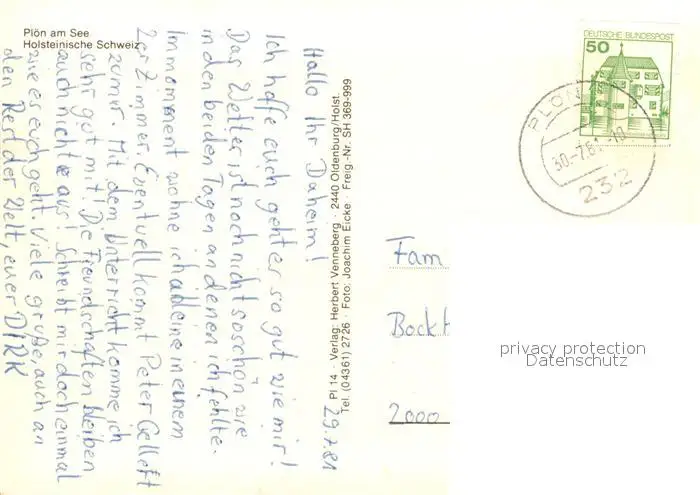 Plön am See
Holsteinische Schweiz
29.7.81
Hallo Ihr Daheim!
Ich hoffe euch geht es so gut wie mir!
Das Wetter ist noch nicht so schön wie
in den beiden Tagen an denen ich fehlte.
Im moment wohne ich alleine in einem
2er Zimmer. Eventuell kommt Peter Gelleft
zu mir. Mit dem Unterricht komme ich
sehr gut mit! Die Freundschaften bleiben
auch nicht aus! Schreibt mir doch einmal
wie es euch geht. Viele grüße, auch an
den Rest der Welt, euer DIRK
Pl 14 · Verlag: Herbert Venneberg · 2440 Oldenburg/Holst.
Tel. (04361) 2726 · Foto: Joachim Eicke · Freig.-Nr. SH 369-999
DEUTSCHE BUNDESPOST
50
PLÖN
30.-7.81.-10
232
Fam
2000
privacy protection
Datenschutz